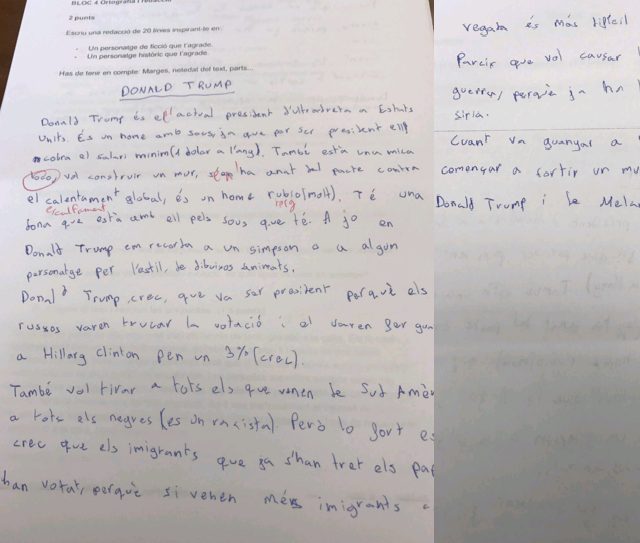 BLOC 4 Ortografia i redacció
2 punts
Escriu una redacció de 20 línies inspirant-te en:
- Un personatge de ficció que t'agrade.
- Un personatge històric que t'agrade.
Has de tenir en compte: Marges, netedat del text, parts...
DONALD TRUMP
Donald Trump és el actual president d'ultradreta a Estats
Units. És un home amb sous, ja que per ser president ell
cobra el salari minim(1 dolar a l'any). També està una mica
vol construir un mur, ha anat del pacte contra
el calentament global, és un home rubio(molt). Té una
escalfament
dona que està amb ell pels sous que té. A jo en
Donald Trump em recorda a un simpson o a algun
personatge per l'estil, de dibuixos animats.
Donald Trump, crec, que va ser president perquè els
russos varen trucar la votació i el varen fer gua
a Hillary Clinton pen un 3% (crec).
També vol tirar a tots els que venen de Sud Amèr
a tots els negres (es un racista). Però lo fort es
crec que els imigrants que ja s'han tret els pap
han votat, perquè si venen més imigrants
vegada és més difícil
Pareix que vol causar
guerra, perquè ja ha
Siria.
Cuant va guanyar a
començar a sortir un mu
Donald Trump i de Melan